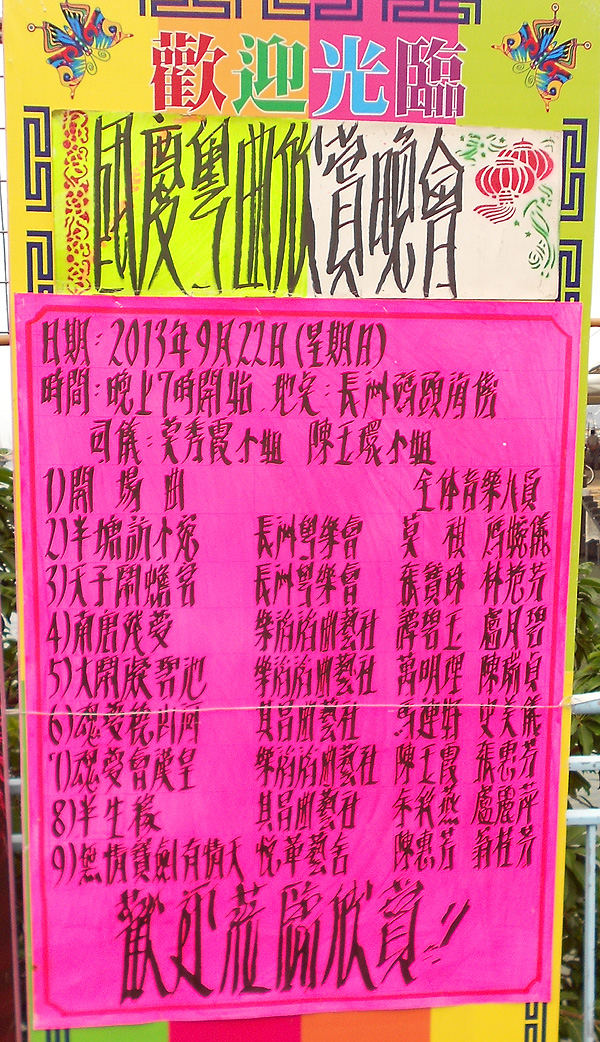 歡迎光臨
國慶粵曲欣賞晚會
日期：2013年9月22日(星期日)
時間：晚上7時開始 地點：長洲碼頭海傍
司儀：莫秀霞小姐 陳玉環小姐
1)開場曲 全体音樂人員
2)半塘訪小菀 長洲粵樂會 莫祺 馮婉儀
3)天子鬧蟾宮 長洲粵樂會 張寶珠 林苑芳
4)南唐殘夢 樂滔滔曲藝社 譚碧玉 盧月碧
5)大鬧凝碧池 樂滔滔曲藝社 萬明理 陳瑞貞
6)魂夢繞山河 其昌曲藝社 馬連好 史美儀
7)魂夢會漢皇 樂滔滔曲藝社 陳玉霞 張惠芳
8)半生緣 其昌曲藝社 余彩燕 盧麗萍
9)無情寶劍有情天 悅華藝舍 陳惠芳 翁桂芳
歡迎蒞臨欣賞!!